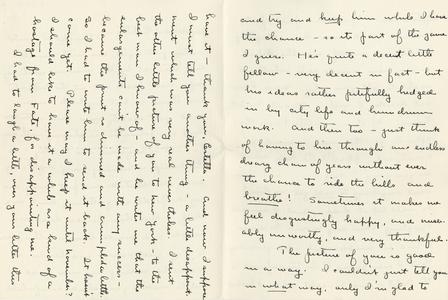 have it - thank you, Estella. And now I suppose
I must tell you another thing - a little disappoint
ment which was very real nevertheless. I sent
the other little picture of you to New York - to the
best man I know of - and he wrote me that the
enlargements can't be made with any success -
because the print is dimmed and crumpled a little
So I had to write him to send it back. It hasn't
come yet. Please may I keep it until November?
I should like to have it a while as a kind of a
hostage from Fate, for disappointing me.
I had to laugh a little, over your letter this
and try and keep him while I have
the chance - so its part of the game
I guess. He's quite a decent little
fellow - very decent in fact - but
his ideas rather pitifully hedged
in by city life and humdrum
work. And then too - just think
of having to live through an endless
dreary chain of years without ever
the chance to ride the hills and
breathe! Sometimes it makes me
feel disgustingly happy, and miser-
ably unworthy, and very thankful.
The picture of you is good
in a way. I couldn't just tell you
in what way, only I'm glad to